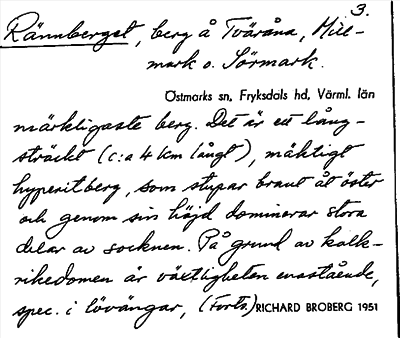 3.
Rännberget, berg å Tväråna, Mill-
mark o. Sörmark.
Östmarks sn, Fryksdals hd, Värml. län
märkligaste berg. Det är ett lång-
sträckt (c:a 4 km långt), mäktigt
hyperitberg, som stupar brant åt öster
och genom sin höjd dominerar stora
delar av socknen. På grund av kalk-
rikedomen är växtligheten enastående,
spec. i lövängar, (Forts.) RICHARD BROBERG 1951